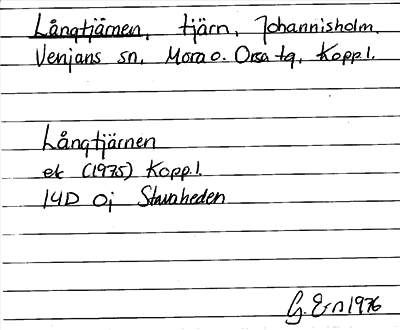 Långtjärnen, tjärn, Johannisholm.
Venjans sn, Mora o. Orsa tg, Kopp.l.
Långtjärnen
ek (1975) Kopp.l.
14D 0j Stavaheden
G. Ern 1976